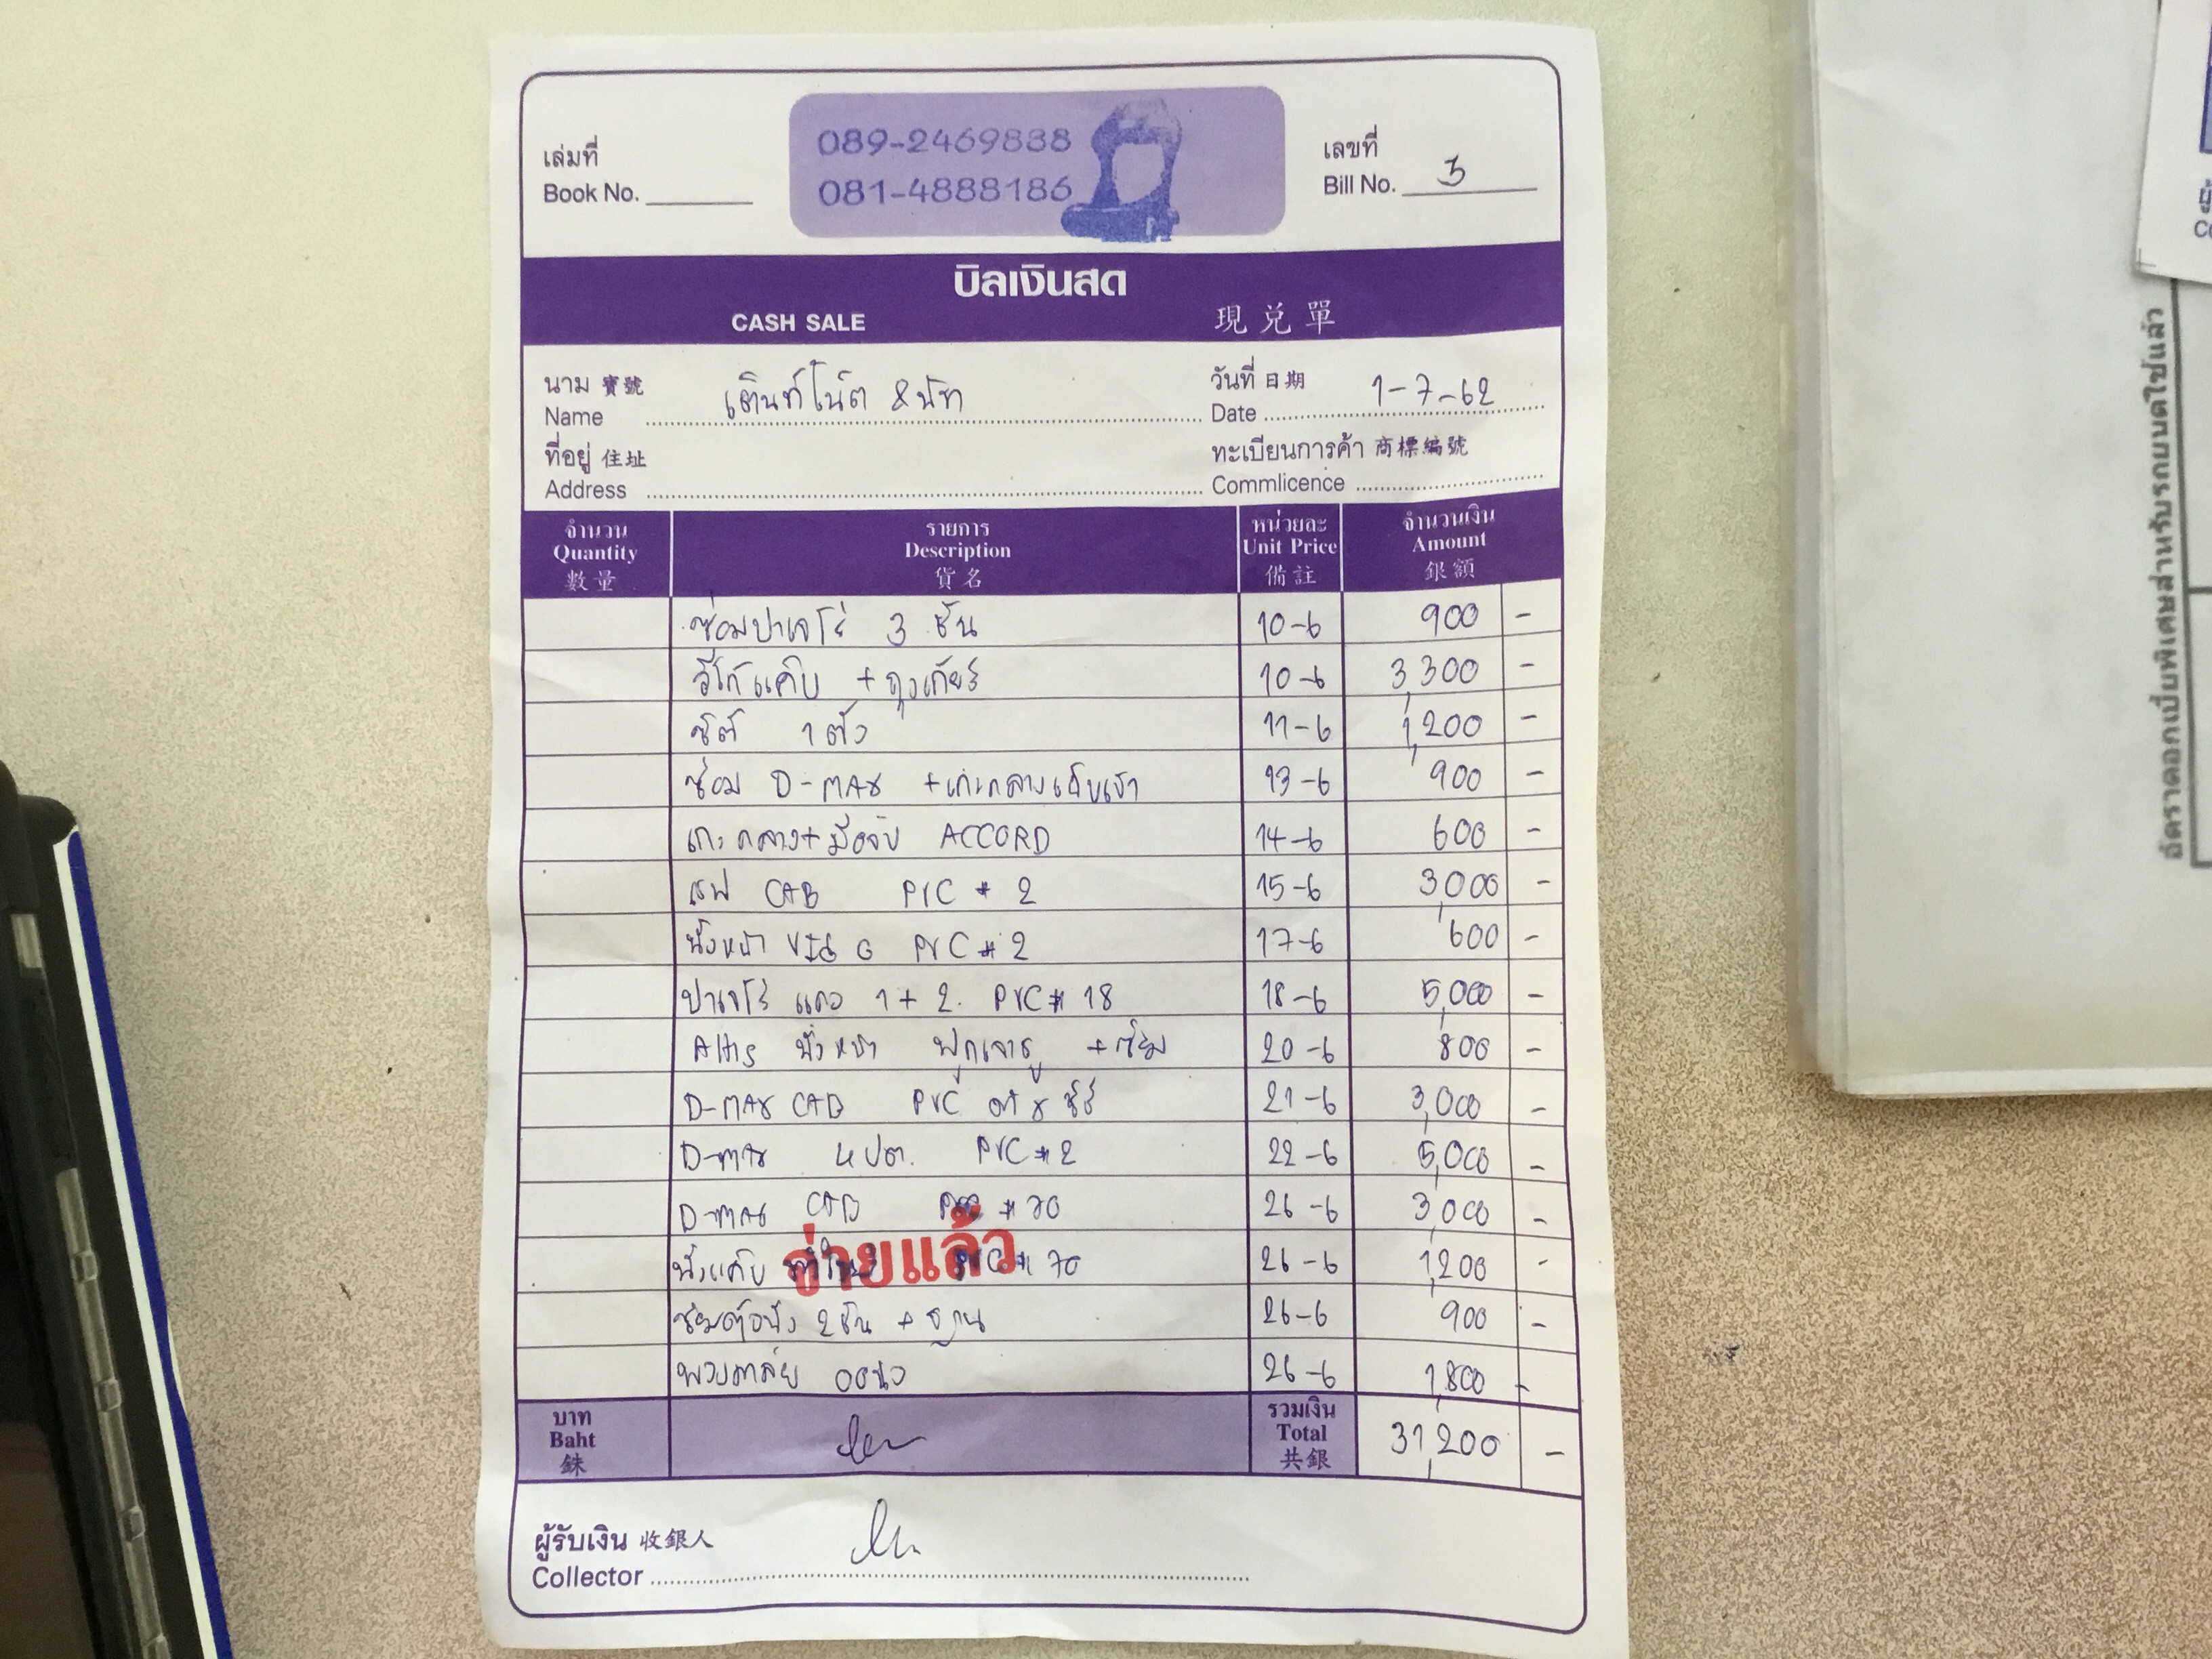 089-2469888
081-4888186
เล่มที่
Book No.
เลขที่
Bill No. 3
บิลเงินสด
CASH SALE 現兌單
นาม 寶號
Name เต็นท์โน๊ต & นัท
วันที่ 日期
Date 1-7-62
ที่อยู่ 住址
Address
ทะเบียนการค้า 商標編號
Commlicence
จำนวน รายการ หน่วยละ จำนวนเงิน
Quantity Description Unit Price Amount
數量 貨名 備註 銀額
ซ่อมปาเจโร่ 3 ชิ้น 10-6 900 -
วีโก้แค็บ + ถุงเกียร์ 10-6 3,300 -
ซิตี้ 1 ตัว 11-6 1,200 -
ซ่อม D-MAX + เก๊ะกลางเย็บเบา 13-6 900 -
เก๊ะกลาง+มือจับ ACCORD 14-6 600 -
CAB PVC # 2 15-6 3,000 -
นั่งหน้า VIGO PVC # 2 17-6 600 -
ปาเจโร่ แถว 1+2. PVC # 18 18-6 5,000 -
Altis นั่งหน้า 20-6 800 -
D-MAX CAB PVC 21-6 3,000 -
D-MAX 4 ปต. PVC # 2 22-6 5,000 -
D-MAX CAB PVC # 70 26-6 3,000 -
นั่งแค็บ PVC # 70 26-6 1,200 -
จ่ายแล้ว
2 ชิ้น + 26-6 900 -
พวงมาลัย 26-6 1,800 -
บาท รวมเงิน
Baht Total 31,200 -
銖 共銀
ผู้รับเงิน 收銀人
Collector
อัตราดอกเบี้ยพิเศษสำหรับรถยนต์ใช้แล้ว